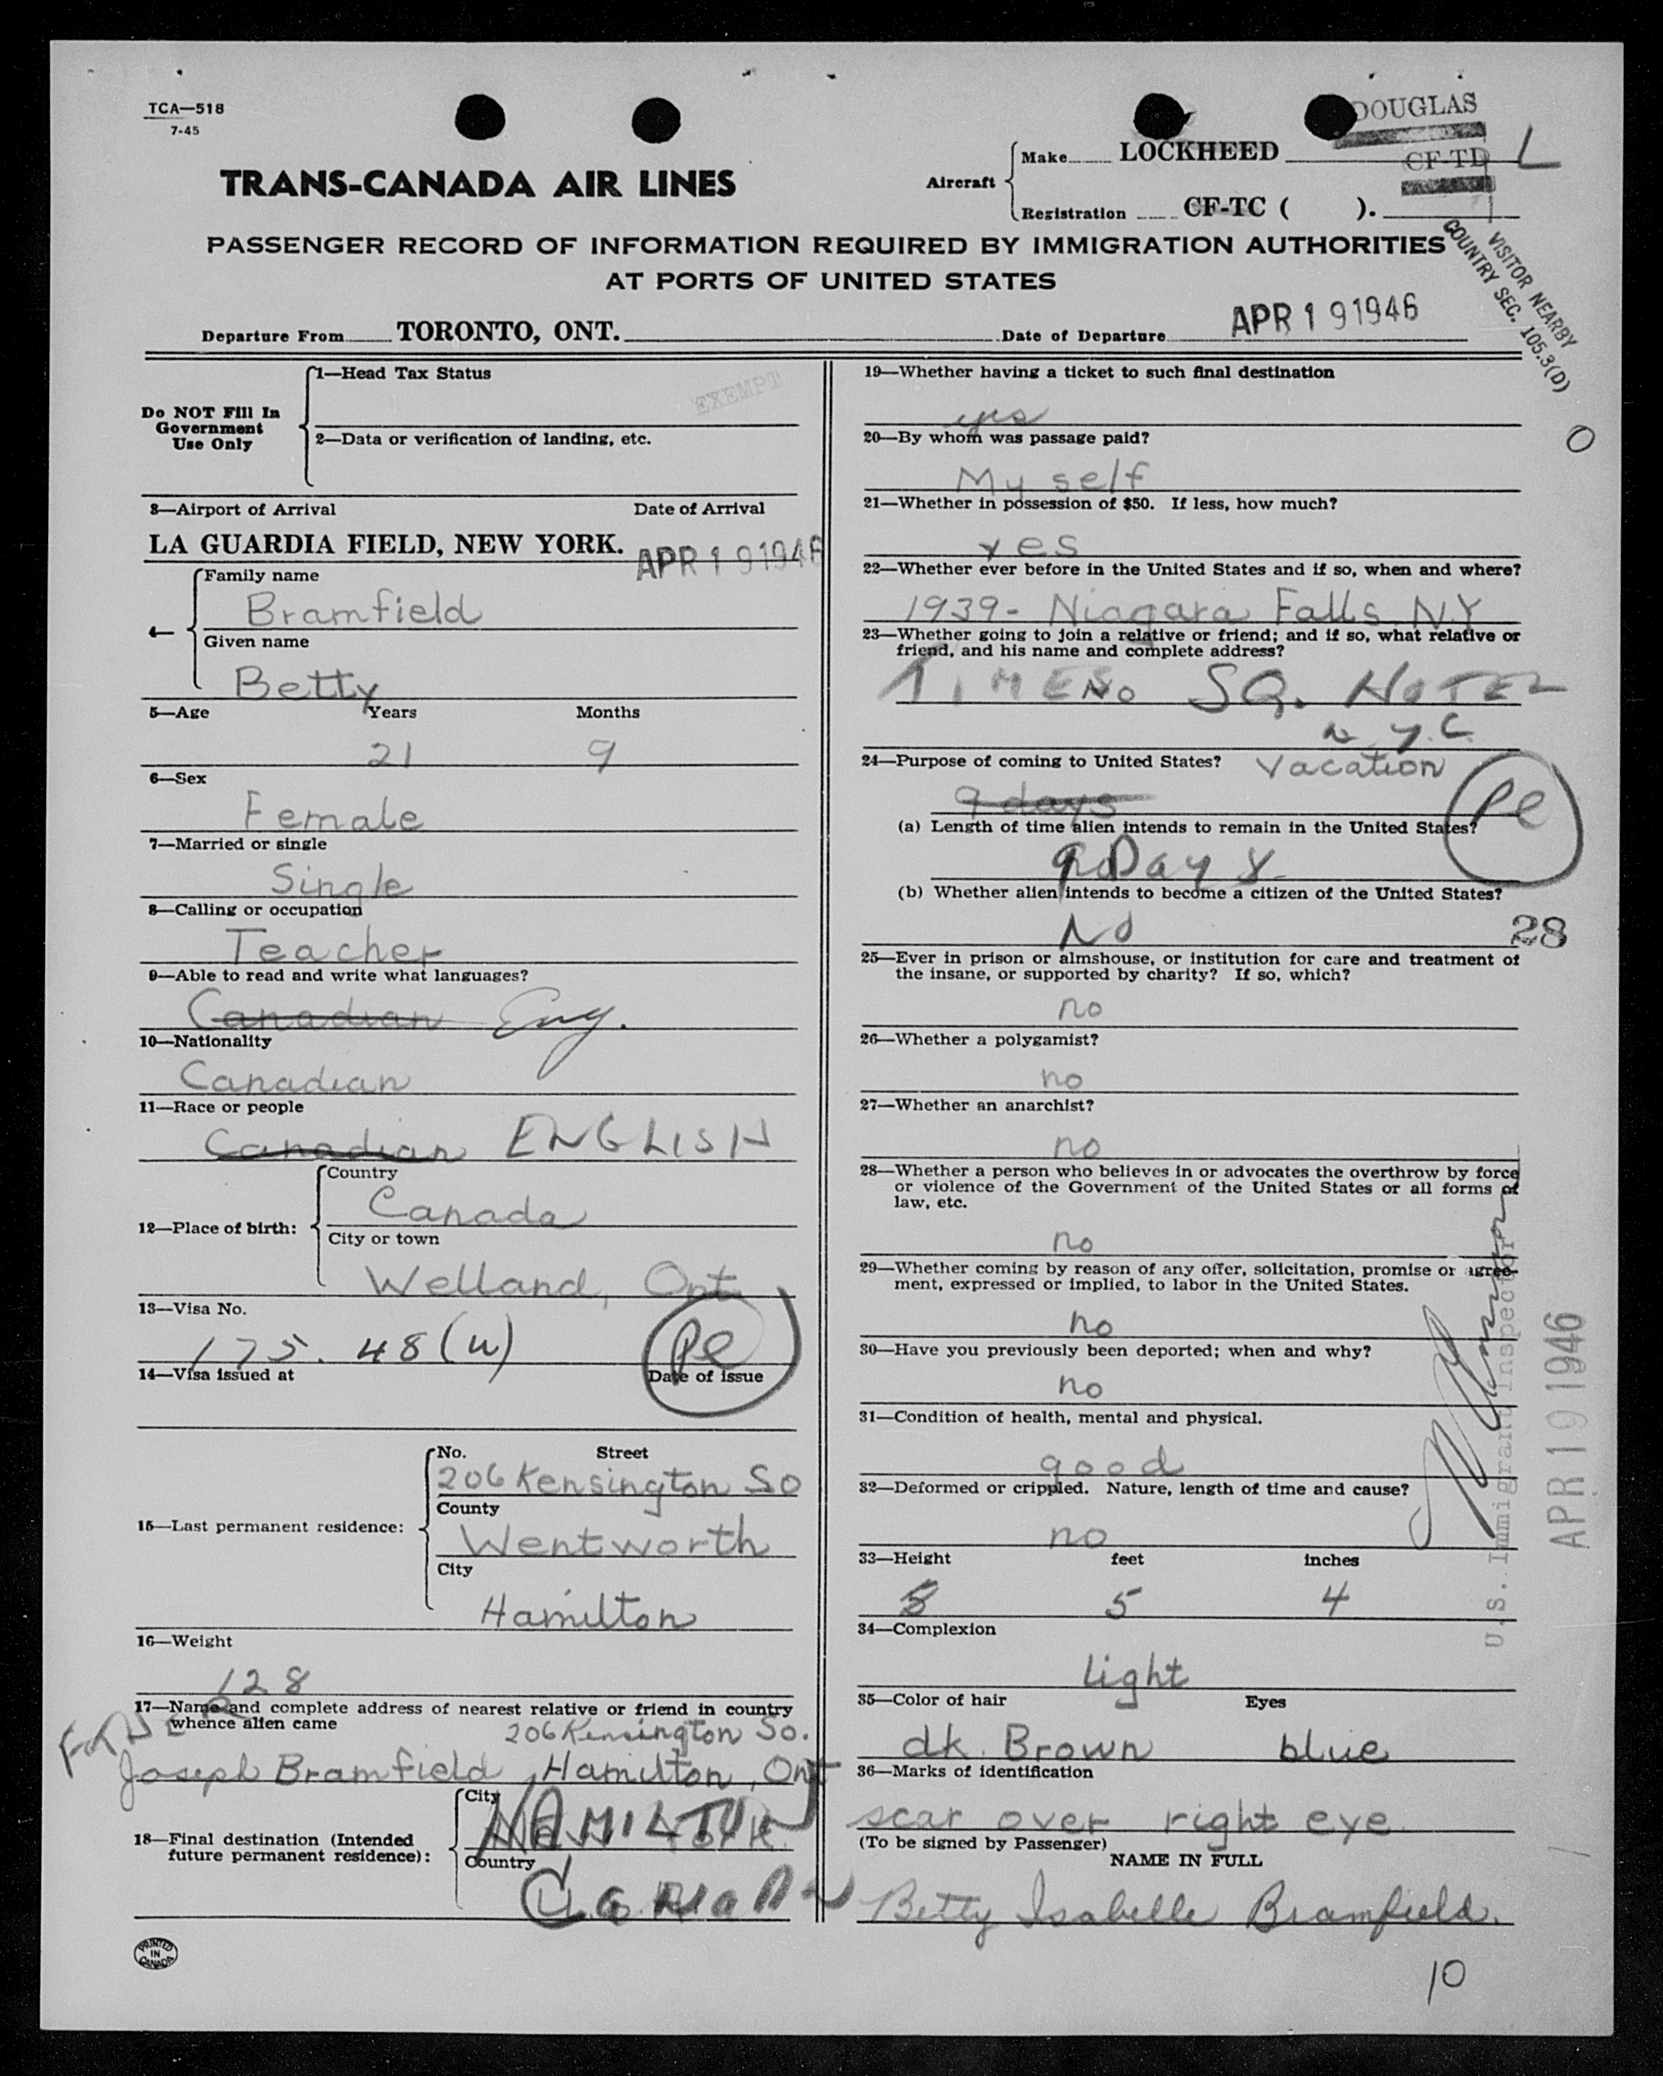 TCA—518
7-45
DOUGLAS
TRANS-CANADA AIR LINES
Aircraft
Make LOCKHEED
CF-TD L
Registration CF-TC ( ).
PASSENGER RECORD OF INFORMATION REQUIRED BY IMMIGRATION AUTHORITIES
AT PORTS OF UNITED STATES
VISITOR NEARBY
COUNTRY SEC. 105.3(D)
Departure From TORONTO, ONT. Date of Departure APR 19 1946
Do NOT Fill In
Government
Use Only
1—Head Tax Status
EXEMPT
2—Data or verification of landing, etc.
3—Airport of Arrival Date of Arrival
LA GUARDIA FIELD, NEW YORK. APR 19 1946
4—
Family name
Bramfield
Given name
Betty
5—Age Years Months
21 9
6—Sex
Female
7—Married or single
Single
8—Calling or occupation
Teacher
9—Able to read and write what languages?
Canadian Eng.
10—Nationality
Canadian
11—Race or people
Canadian ENGLISH
12—Place of birth:
Country
Canada
City or town
Welland, Ont
13—Visa No.
175. 48 (w)
Pe
14—Visa issued at Date of issue
15—Last permanent residence:
No. Street
206 Kensington So
County
Wentworth
City
Hamilton
16—Weight
128
17—Name and complete address of nearest relative or friend in country
whence alien came
206 Kensington So.
Joseph Bramfield, Hamilton, Ont
18—Final destination (Intended
future permanent residence):
City
HAMILTON
Country
19—Whether having a ticket to such final destination
yes
O
20—By whom was passage paid?
My self
21—Whether in possession of $50. If less, how much?
yes
22—Whether ever before in the United States and if so, when and where?
1939 - Niagara Falls N.Y
23—Whether going to join a relative or friend; and if so, what relative or
friend, and his name and complete address?
No
TIMES SQ. HOTEL
N.Y.C.
24—Purpose of coming to United States? Vacation
9 days
Pe
(a) Length of time alien intends to remain in the United States?
9 Days
(b) Whether alien intends to become a citizen of the United States?
No
28
25—Ever in prison or almshouse, or institution for care and treatment of
the insane, or supported by charity? If so, which?
no
26—Whether a polygamist?
no
27—Whether an anarchist?
no
28—Whether a person who believes in or advocates the overthrow by force
or violence of the Government of the United States or all forms of
law, etc.
no
29—Whether coming by reason of any offer, solicitation, promise or agree-
ment, expressed or implied, to labor in the United States.
no
30—Have you previously been deported; when and why?
no
31—Condition of health, mental and physical.
good
32—Deformed or crippled. Nature, length of time and cause?
no
33—Height feet inches
5 4
34—Complexion
light
35—Color of hair Eyes
dk. Brown blue
36—Marks of identification
scar over right eye.
(To be signed by Passenger)
NAME IN FULL
Betty Isabelle Bramfield.
U.S. Immigrant Inspector
APR 19 1946
PRINTED
IN
CANADA
10